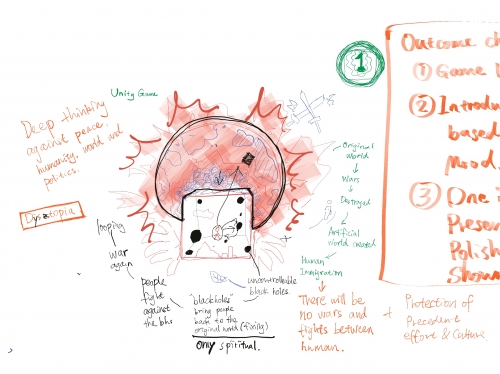 Unity Game
Deep thinking
against peace.
humanity, world and
politics.
Dystopia
looping
war
again
people
fight
against
the bhs
"blackholes"
bring people
back to the
original world (fixing)
only spiritual.
uncontrollable
black holes.
Original
world
Wars
Destroyed
Artificial
world created
Human
Immigration
There will be
no wars and
fights between
human.
+
Protection of
Precedent
effort & Culture.
1
Outcome
① Game
② Introdu
based
Mood.
③ One
Presen
Polish
Show